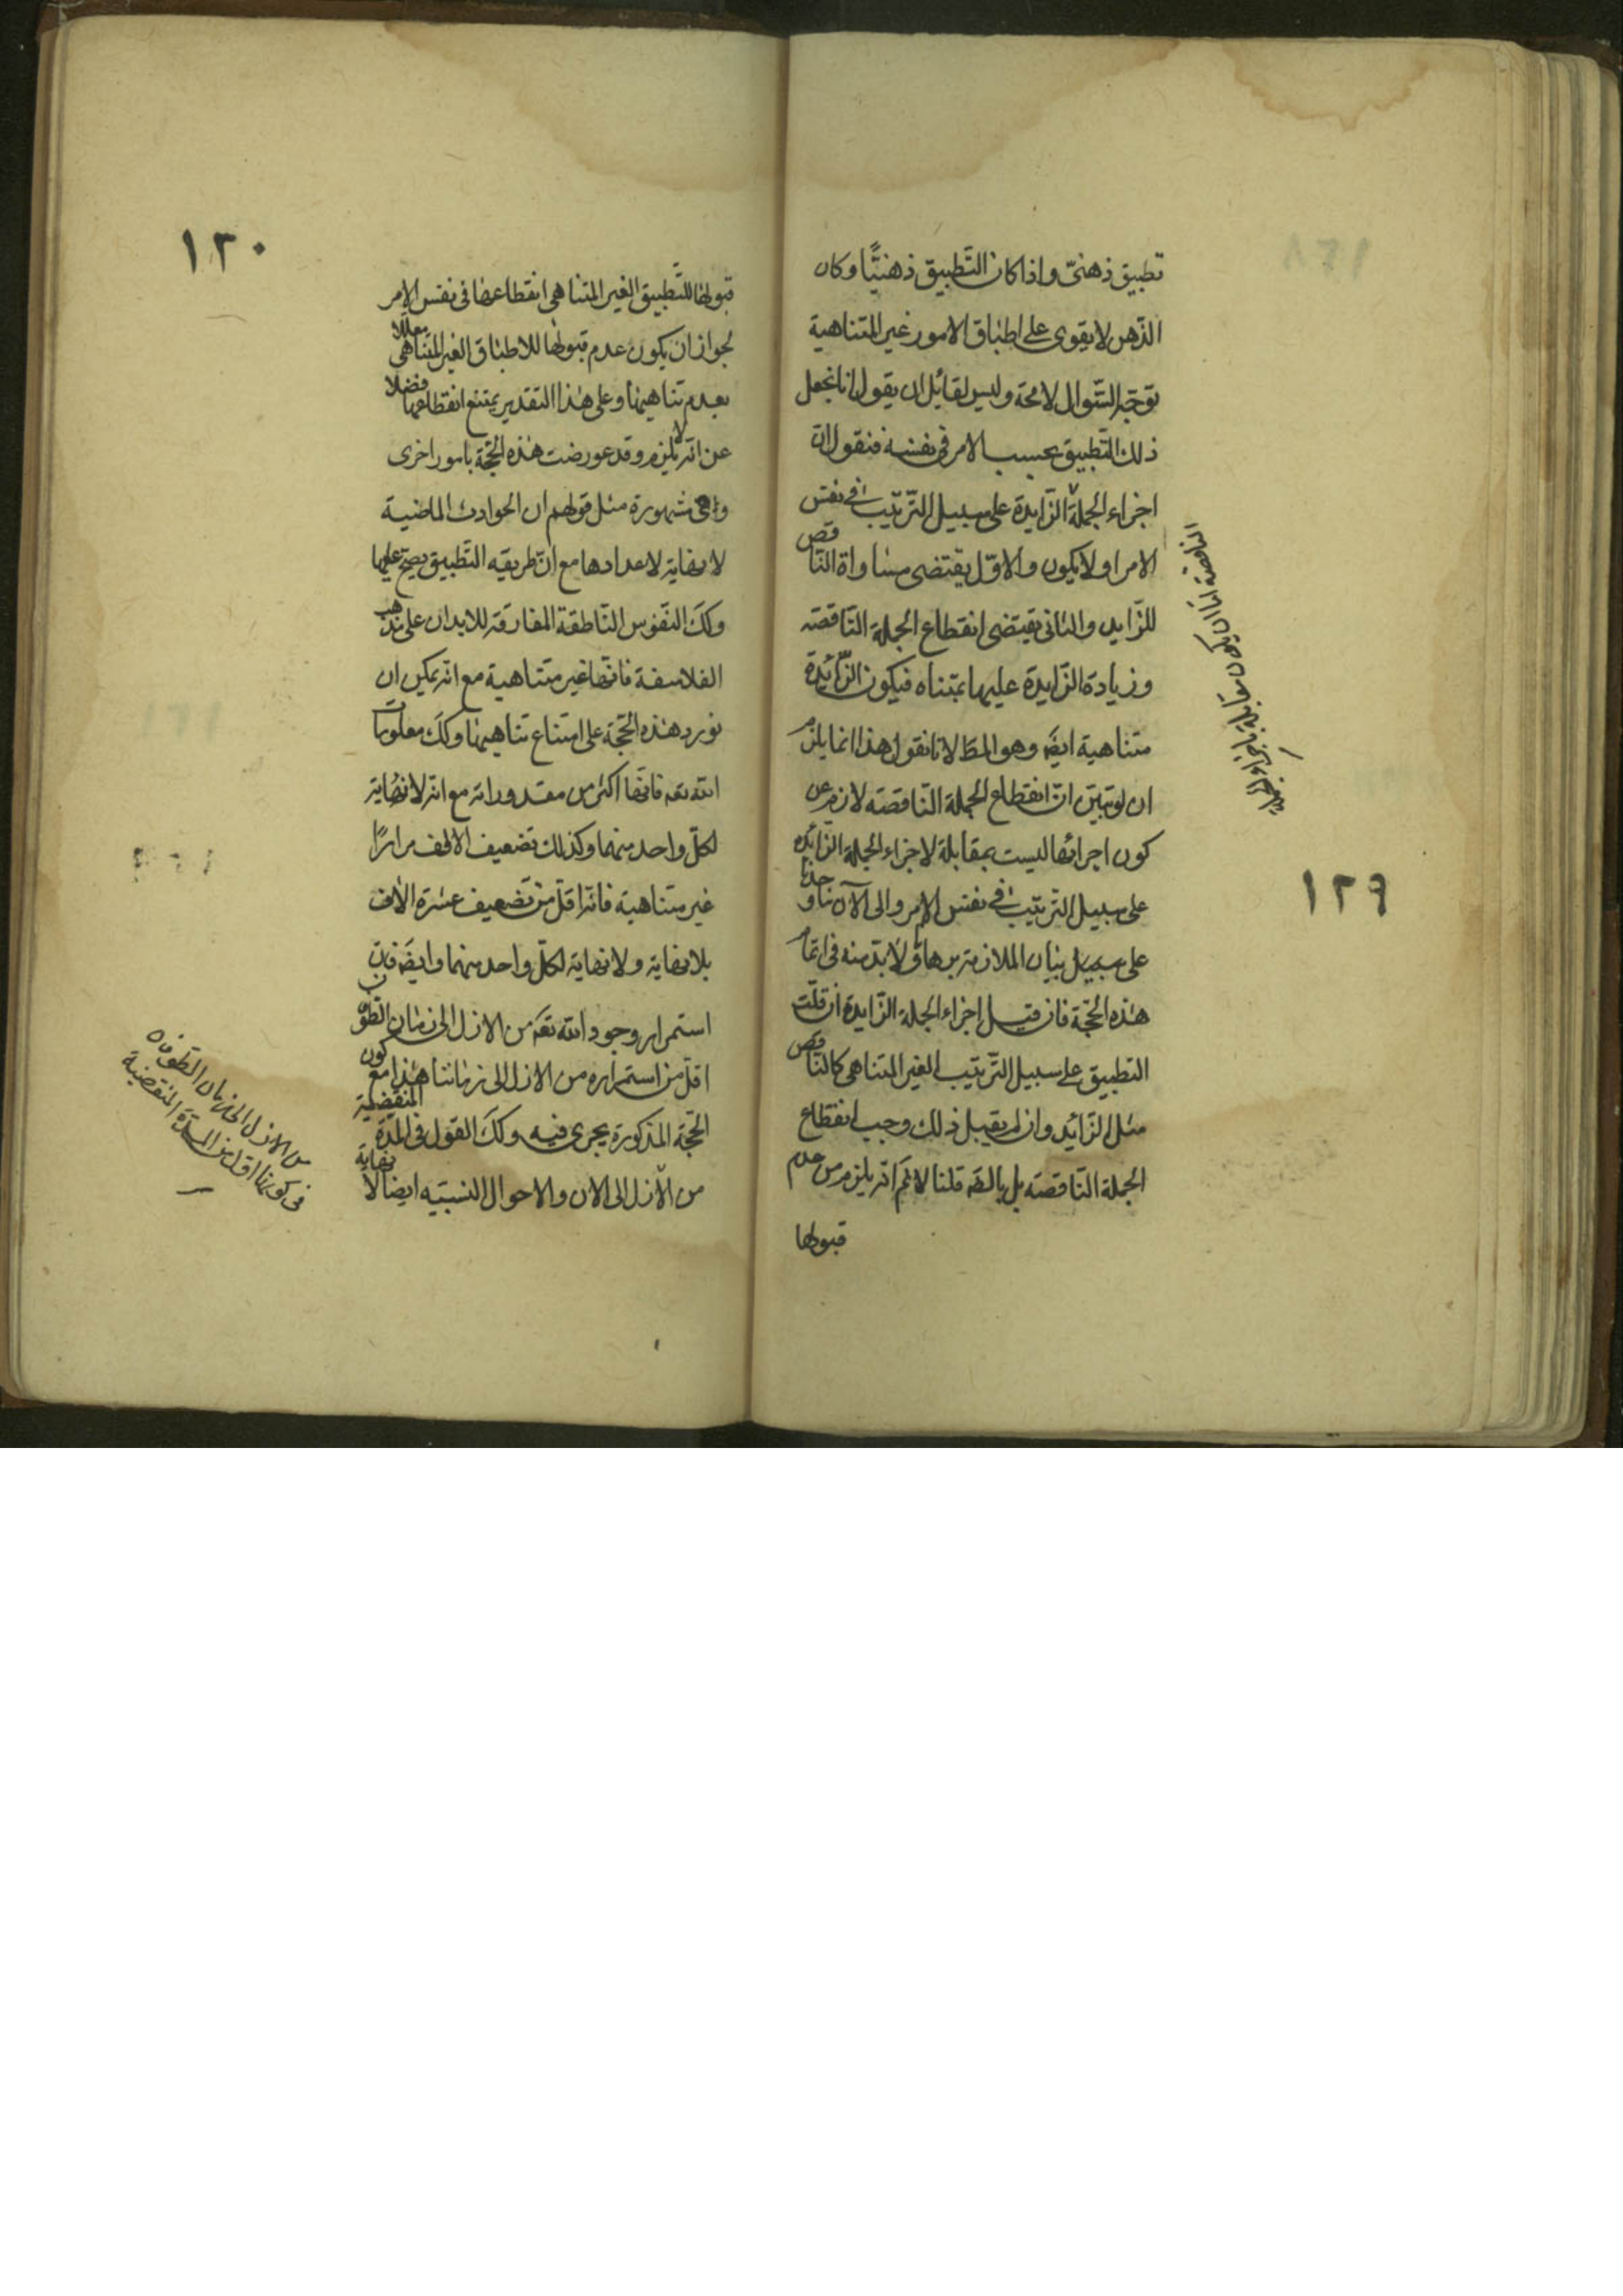 تطبيق ذهنىّ واذا كان التّطبيق ذهنيًّا وكان
الذّهن لا يقوى على اطباق الامور غير المتناهية
توجّه السّوال لامحة وليس لقائل ان يقول انا نجعل
ذلك التّطبيق بحسب الامر فى نفسه فنقول ان
اجزاء الجملة الزّايدة على سبيل التّرتيب فى نفس
الامر اولا يكون والاوّل يقتضى مساواة النّاقص
للزّايد والثانى يقتضى انقطاع الجملة النّاقصة
وزيادة الزّايدة عليها بمتناه فيكون الزّائدة
متناهية ايضَ وهو المط لانا نقول هذا انما يلزم
ان لو تبيّن انّ انقطاع الجملة النّاقصة لازم عن
كون اجزائها ليست بمقابلة لاجزاء الجملة الزّائده
على سبيل الترتيب فى نفس الامر والى الآن ما وجدنا
على سبيل بيان الملازمة برهانا ولا بدّ منه فى اتمام
هذه الحّجة فان قيل اجزاء الجملة الزّايدة ان قبلت
التطبيق على سبيل التّرتيب الغير المتناهى كان النّاقص
مثل الزّائد وان لم يقبل ذلك وجب انقطاع
الجملة النّاقصة بل بالضَه قلنا لا نمَ انّه يلزم من عدم
قبولها
النّاقصة امّا ان يكون مقابلة باجزاء الجملة
١٢٩
١٣٠
قبولها للتّطبيق الغير المتناهى انقطاعها فى نفس الامر
لجواز ان يكون عدم قبولها للاطباق الغير المتناهى معلّلا
بعدم تناهيها وعلى هذا التقدير يمتنع انقطاعها فضلا
عن انّه لا يلزم وقد عورضت هذه الحّجة بامور اخرى
وهى مشهورة مثل قولهم ان الحوادث الماضية
لا نهاية لاعدادها مع انّ طريقه التّطبيق يصحّ عليها
وكَك النّفوس النّاطقة المفارقة للابدان على مذهب
الفلاسفة فانّها غير متناهية مع انّه يمكن ان
نورد هذه الحّجة على امتناع تناهيها وكَك معلومات
الله تعَه فانّها اكثر من مقدوراته مع انّه لا نهاية
لكلّ واحد منهما وكذلك تضعيف الالف مرارًا
غير متناهية فانّه اقلّ من تضعيف عشرة الاف
بلا نهاية ولا نهاية لكلّ واحد منهما وايضَه فان
استمرار وجود الله تعَه من الازل الى زمان الطّوفان
اقلّ من استمراره من الازل الى زماننا هذا مع كون
الحّجة المذكورة يجرى فيه وكَك القول فى المدّة المنقضية
من الازل الى الان والاحوال النسبيّه ايضا لا نهاية
من الازل الى زمان الطّوفان
فى كونها اقل من المدّة المنقضية